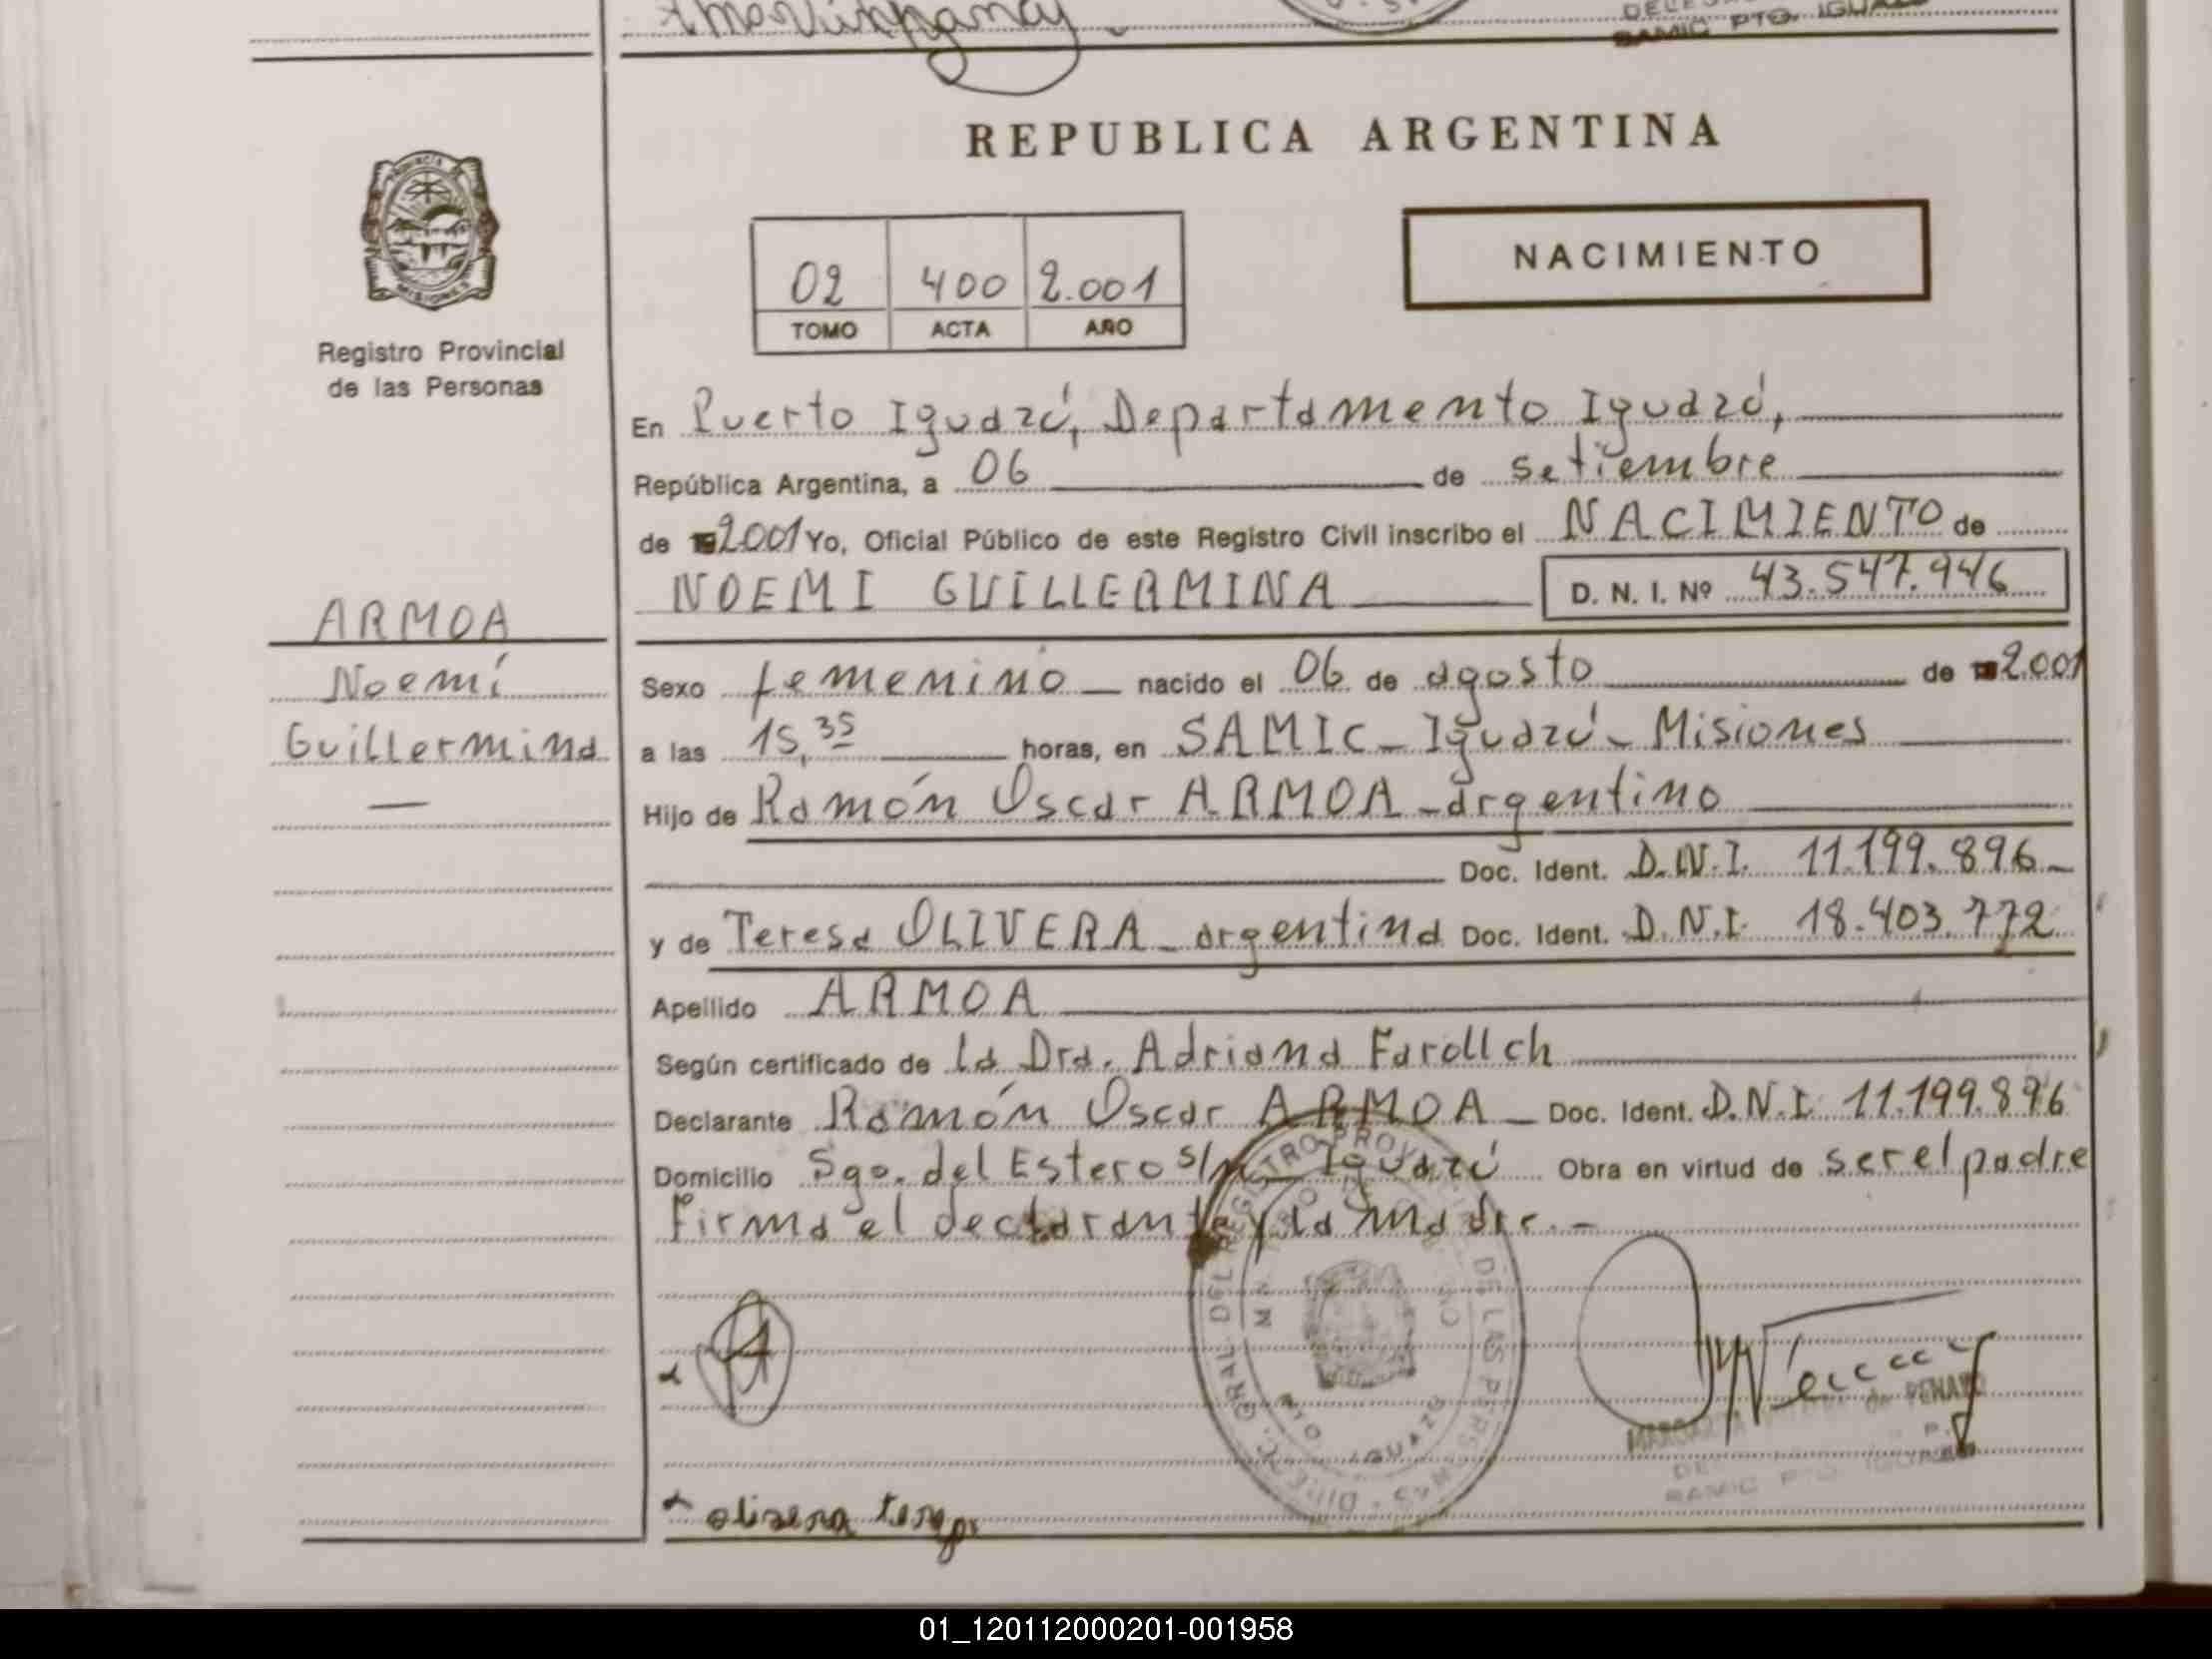 PTO. IGUAZU
SAMIC
REPUBLICA ARGENTINA
PROVINCIA
MISIONES
Registro Provincial
de las Personas
02 400 2.001
TOMO ACTA AÑO
NACIMIENTO
En Puerto Iguazú, Departamento Iguazú,
República Argentina, a 06 de setiembre
de 2001 Yo, Oficial Público de este Registro Civil inscribo el NACIMIENTO de
NOEMI GUILLERMINA D. N. I. Nº 43.547.946
ARMOA
Noemí
Guillermina
Sexo femenino nacido el 06 de agosto de 2.001
a las 15,35 horas, en SAMIC - Iguazú - Misiones
Hijo de Ramón Oscar ARMOA - argentino
Doc. Ident. D.N.I. 11.199.896 -
y de Teresa OLIVERA - argentina Doc. Ident. D.N.I. 18.403.772
Apellido ARMOA
Según certificado de la Dra. Adriana Farollch
Declarante Ramón Oscar ARMOA - Doc. Ident. D.N.I. 11.199.896
Domicilio Sgo. del Estero s/n - Iguazú Obra en virtud de ser el padre
Firma el declarante y la madre. -
DIREC. GRAL. DEL REGISTRO PROVINCIAL DE LAS PERSONAS
PTO. IGUAZU
SAMIC PTO. IGUAZU
01_120112000201-001958